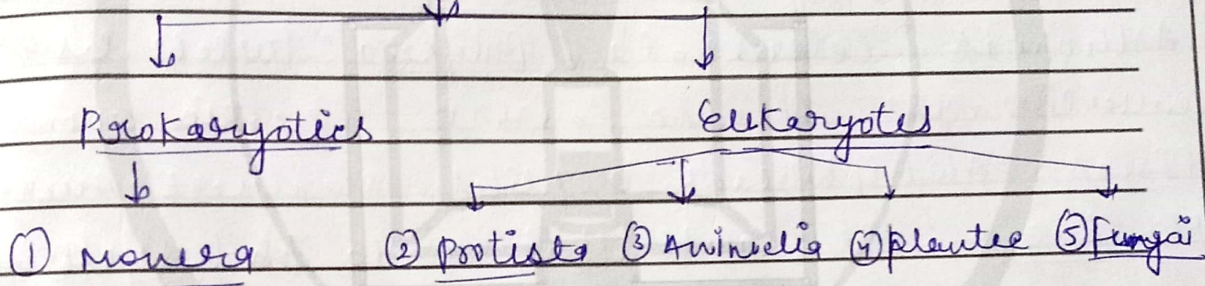 Prokaryotics Eukaryotes
① Monera ② Protista ③ Animelia ④ plantee ⑤ Fungai